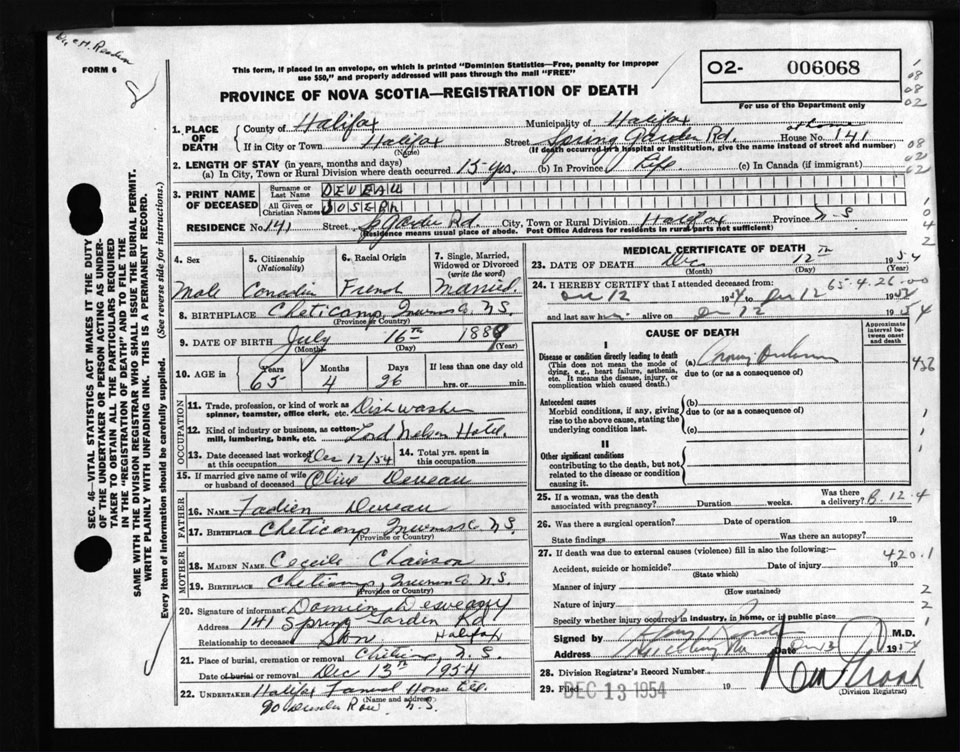 FORM 6
This form, if placed in an envelope, on which is printed "Dominion Statistics—Free, penalty for improper
use $50," and properly addressed will pass through the mail "FREE"
PROVINCE OF NOVA SCOTIA—REGISTRATION OF DEATH
O2- 006068
For use of the Department only
1. PLACE OF DEATH
County of Halifax Municipality of Halifax
If in City or Town Halifax Street Spring Garden Rd. House No. 141
(Name) (If death occurred in a hospital or institution, give the name instead of street and number)
2. LENGTH OF STAY (in years, months and days)
(a) In City, Town or Rural Division where death occurred 15 yrs. (b) In Province Life (c) In Canada (if immigrant)
3. PRINT NAME OF DECEASED
Surname or Last Name DEVEAU
All Given or Christian Names JOSEPH
RESIDENCE No. 141 Street Sp Garden Rd. City, Town or Rural Division Halifax Province N.S
(Residence means usual place of abode. Post Office Address for residents in rural parts not sufficient)
4. Sex Male
5. Citizenship (Nationality) Canadian
6. Racial Origin French
7. Single, Married, Widowed or Divorced (write the word) Married.
8. BIRTHPLACE Cheticamp, N.S
(Province or Country)
9. DATE OF BIRTH July 16th 1889
(Month) (Day) (Year)
10. AGE in Years 65 Months 4 Days 26 If less than one day old hrs. or min.
OCCUPATION
11. Trade, profession, or kind of work as spinner, teamster, office clerk, etc. Dishwasher
12. Kind of industry or business, as cotton-mill, lumbering, bank, etc. Lord Nelson Hotel.
13. Date deceased last worked at this occupation Dec 12/54 14. Total yrs. spent in this occupation
15. If married give name of wife or husband of deceased Olive Deveau
FATHER
16. NAME Deveau
17. BIRTHPLACE Cheticamp N.S.
(Province or Country)
MOTHER
18. MAIDEN NAME Cecile Chaisson
19. BIRTHPLACE Cheticamp, N.S.
(Province or Country)
20. Signature of informant Damien
Address 141 Spring Garden Rd
Relationship to deceased Son Halifax
21. Place of burial, cremation or removal N.S.
Date of burial or removal Dec 13th 1954
22. UNDERTAKER Halifax Funeral Home Ltd.
(Name and address)
90 Row N.S.
MEDICAL CERTIFICATE OF DEATH
23. DATE OF DEATH Dec 12th 1954
(Month) (Day) (Year)
65-4-26-00
24. I HEREBY CERTIFY that I attended deceased from:
Dec 12 1954 to Dec 12 1954
and last saw him alive on Dec 12 1954
CAUSE OF DEATH
Approximate interval between onset and death
I
Disease or condition directly leading to death
(This does not mean the mode of dying, e.g., heart failure, asthenia, etc. It means the disease, injury, or complication which caused death.)
(a)
due to (or as a consequence of)
Antecedent causes
Morbid conditions, if any, giving rise to the above cause, stating the underlying condition last.
(b)
due to (or as a consequence of)
(c)
II
Other significant conditions
contributing to the death, but not related to the disease or condition causing it.
25. If a woman, was the death associated with pregnancy? Duration weeks. Was there a delivery? B-12-4
26. Was there a surgical operation? Date of operation 19
State findings Was there an autopsy?
27. If death was due to external causes (violence) fill in also the following:— 420.1
Accident, suicide or homicide? Date of injury 19
(State which)
Manner of injury
(How sustained)
Nature of injury
Specify whether injury occurred in industry, in home, or in public place
Signed by M.D.
Address Date 1954
28. Division Registrar's Record Number
29. Filed DEC 13 1954 19
(Division Registrar)
SEC. 46—VITAL STATISTICS ACT MAKES IT THE DUTY
OF THE UNDERTAKER OR PERSON ACTING AS UNDER-
TAKER TO OBTAIN ALL THE PARTICULARS REQUIRED
IN THE "REGISTRATION OF DEATH" AND TO FILE THE
SAME WITH THE DIVISION REGISTRAR WHO SHALL ISSUE THE BURIAL PERMIT.
WRITE PLAINLY WITH UNFADING INK. THIS IS A PERMANENT RECORD.
Every item of information should be carefully supplied. (See reverse side for instructions.)